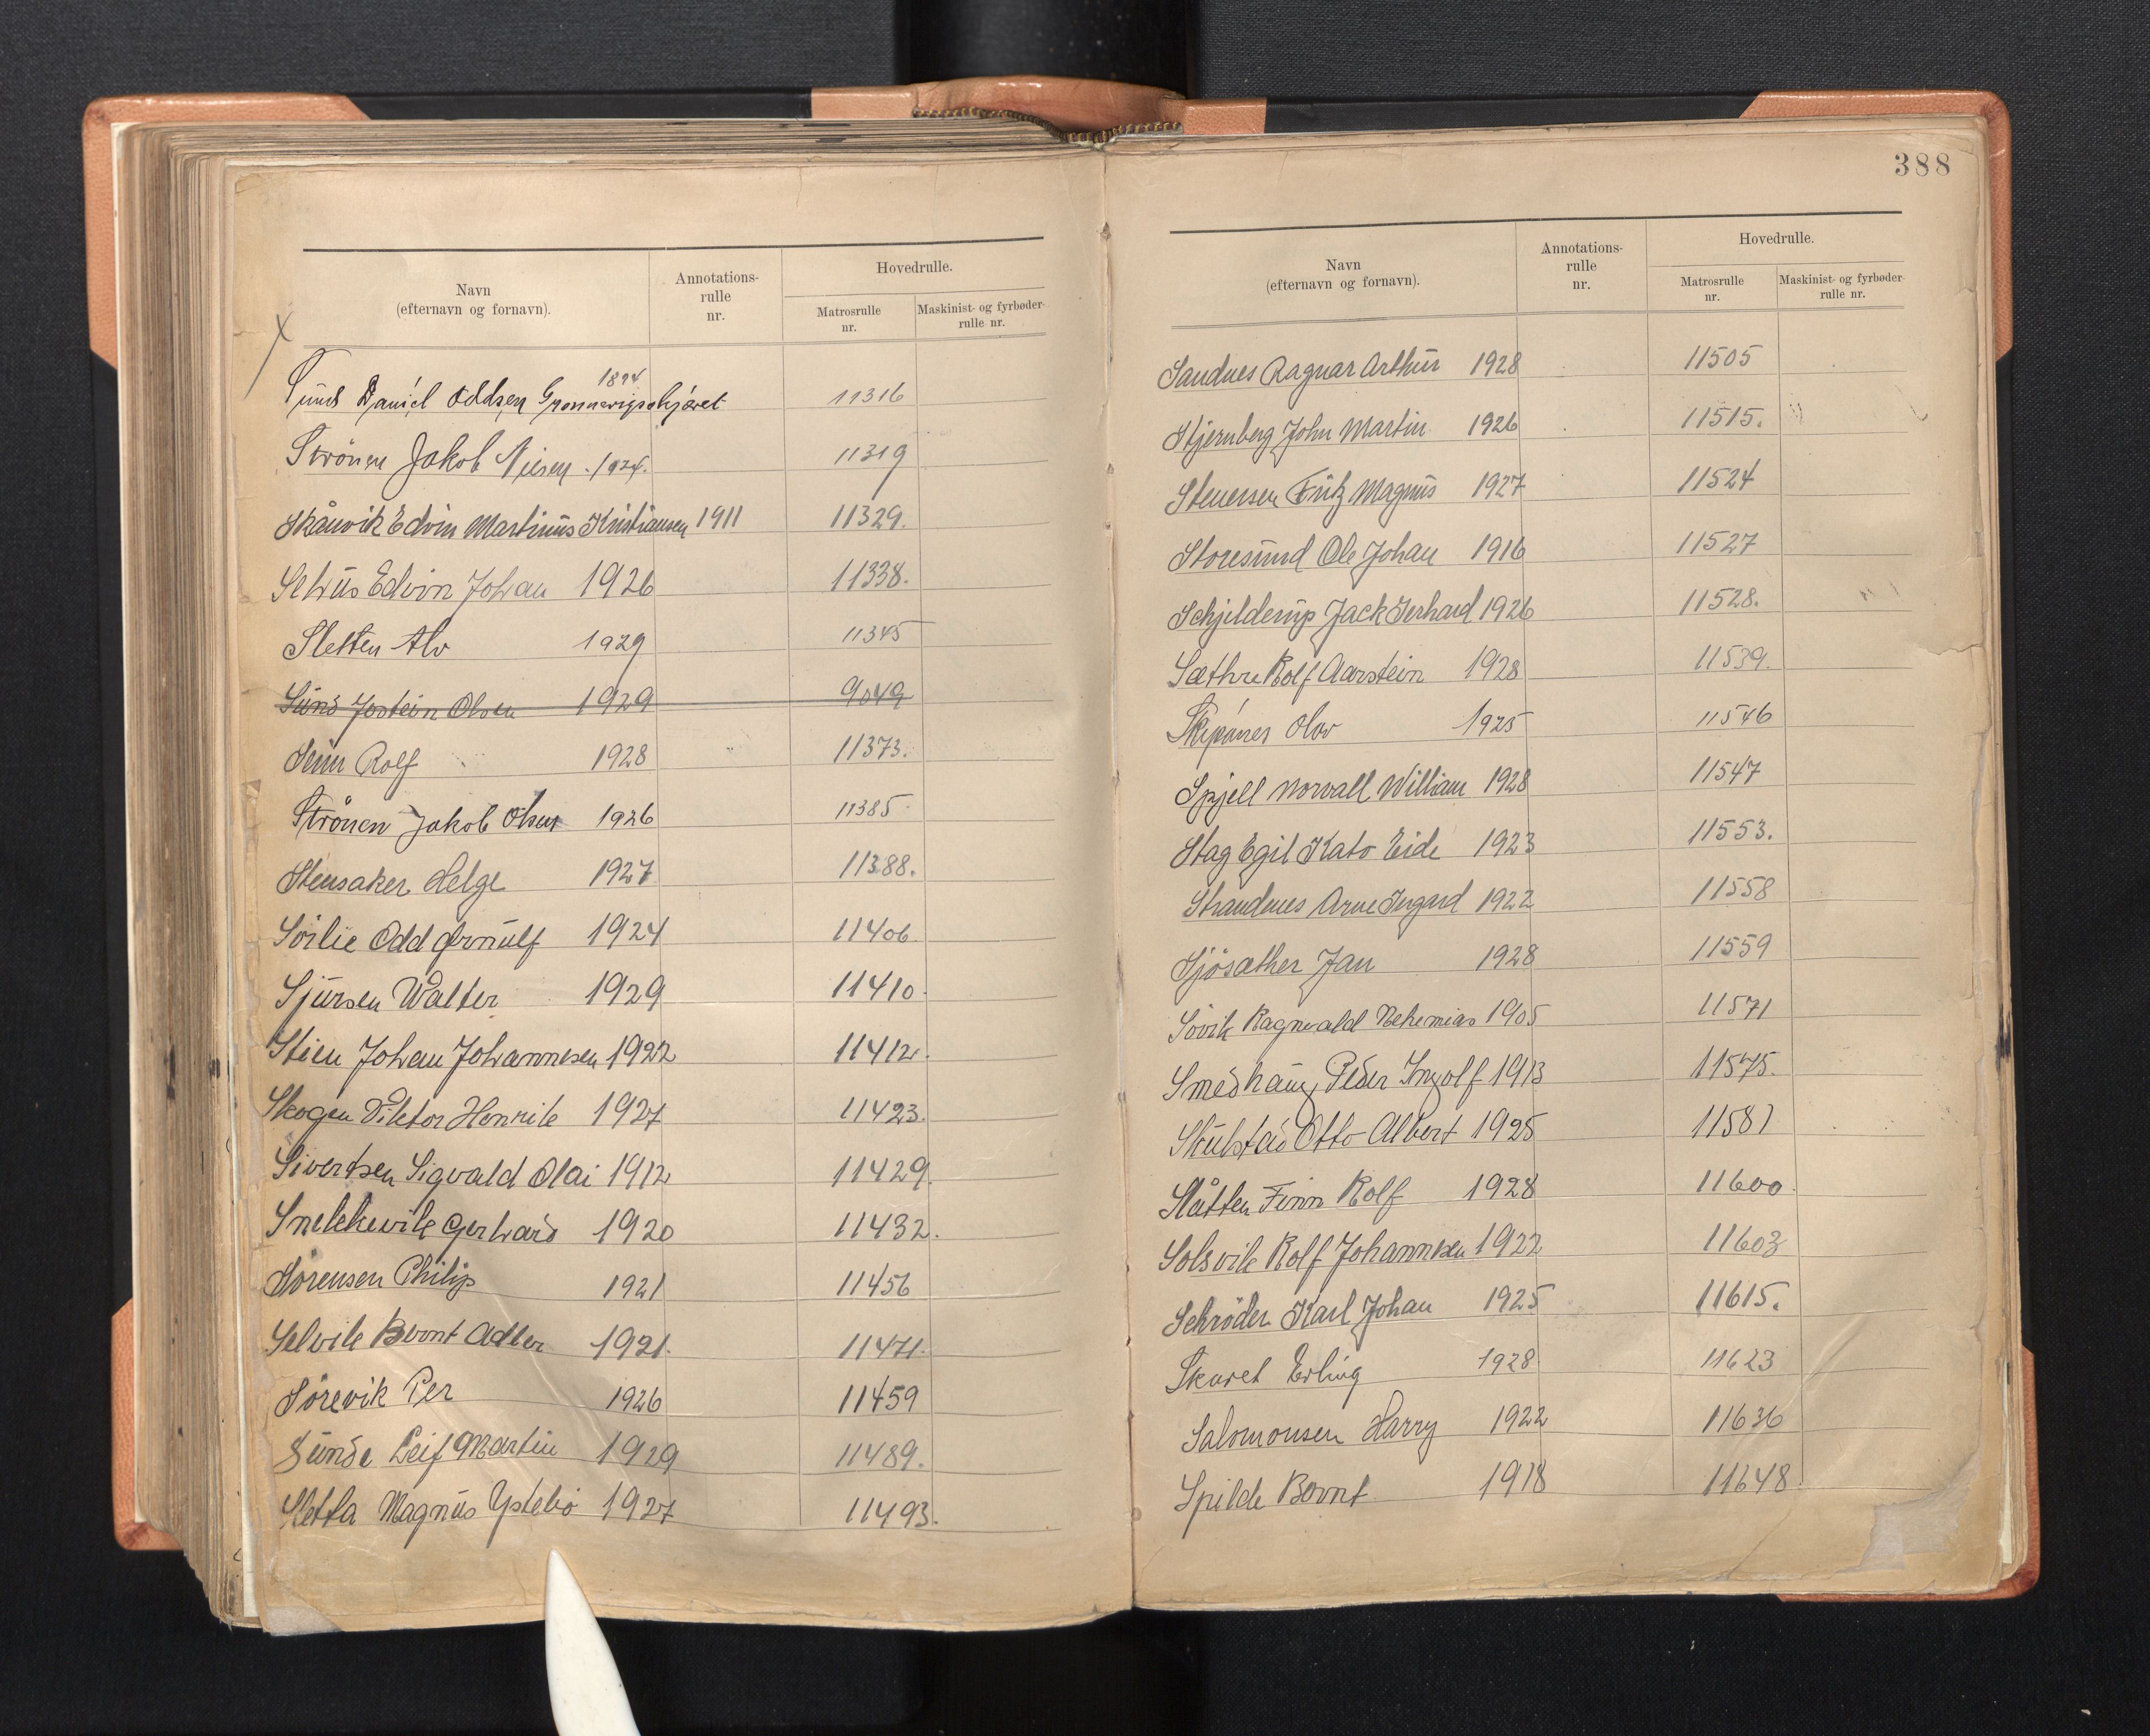 Navn
(efternavn og fornavn).
Annotations-
rulle
nr.
Hovedrulle.
Matrosrulle
nr.
Maskinist- og fyrbøder-
rulle nr.
1894
Sund Daniel Oddsen 11316
Strönen Jakob Nilsen 1924. 11319
Skånvik Edvin Martinus Kristiansen 1911 11329.
Selvus Edvin Johan 1926 11338.
Sletten Alv 1929 11345
Sund Jostein Olsen 1929 9049
Rolf 1928 11373.
Strönen Jakob Olsen 1926 11385
Stensaker Helge 1927 11388.
Sörlie Odd Arnulf 1924 11406.
Sjursen Walter 1929 11410.
Stien Johan Johannesen 1922 11412.
Skogen Viktor Henrik 1927 11423.
Sivertsen Sigvald Olai 1912 11429.
Snekkevik Gerhard 1920 11432.
Sörensen Philip 1921 11456
Selvik Bernt Adler 1921. 11471.
Sörevik Per 1926 11459
Sunde Leif Martin 1929 11489.
Sletta Magnus Ystebö 1927 11493.
388
Navn
(efternavn og fornavn).
Annotations-
rulle
nr.
Hovedrulle.
Matrosrulle
nr.
Maskinist- og fyrbøder-
rulle nr.
Sandnes Ragnar Arthur 1928 11505
Stjernberg John Martin 1926 11515.
Stenersen Fritz Magnus 1927 11524
Storesund Ole Johan 1916 11527
Schjilderup Jack Gerhard 1926 11528.
Sæthre Rolf Aarstein 1928 11539.
Skipånes Olov 1925 11546
Spjell Norvall William 1928 11547
Stag Egil Kato Eide 1923 11553.
Strandenes Arne Ingard 1922 11558
Sjösæther Jan 1928 11559
Sövik Ragnvald Nehemias 1905 11571
Smedhaug Peder Ingolf 1913 11575.
Skulstad Otto Albert 1925 11581
Slåtten Finn Rolf 1928 11600.
Solsvik Rolf Johannesen 1922 11603
Schröder Karl Johan 1925 11615.
Skaret Erling 1928 11623
Salomonsen Harry 1922 11636
Spilde Bernt 1918 11648.